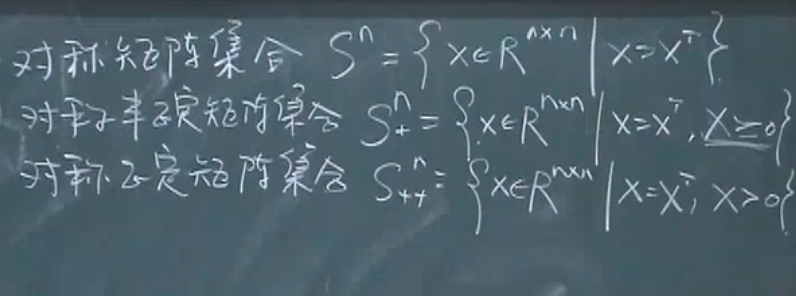 对称矩阵集合 Sⁿ = {X∈Rⁿˣⁿ | X=Xᵀ}
对称半正定矩阵集合 S₊ⁿ = {X∈Rⁿˣⁿ | X=Xᵀ, X≥0}
对称正定矩阵集合 S₊₊ⁿ = {X∈Rⁿˣⁿ | X=Xᵀ, X>0}